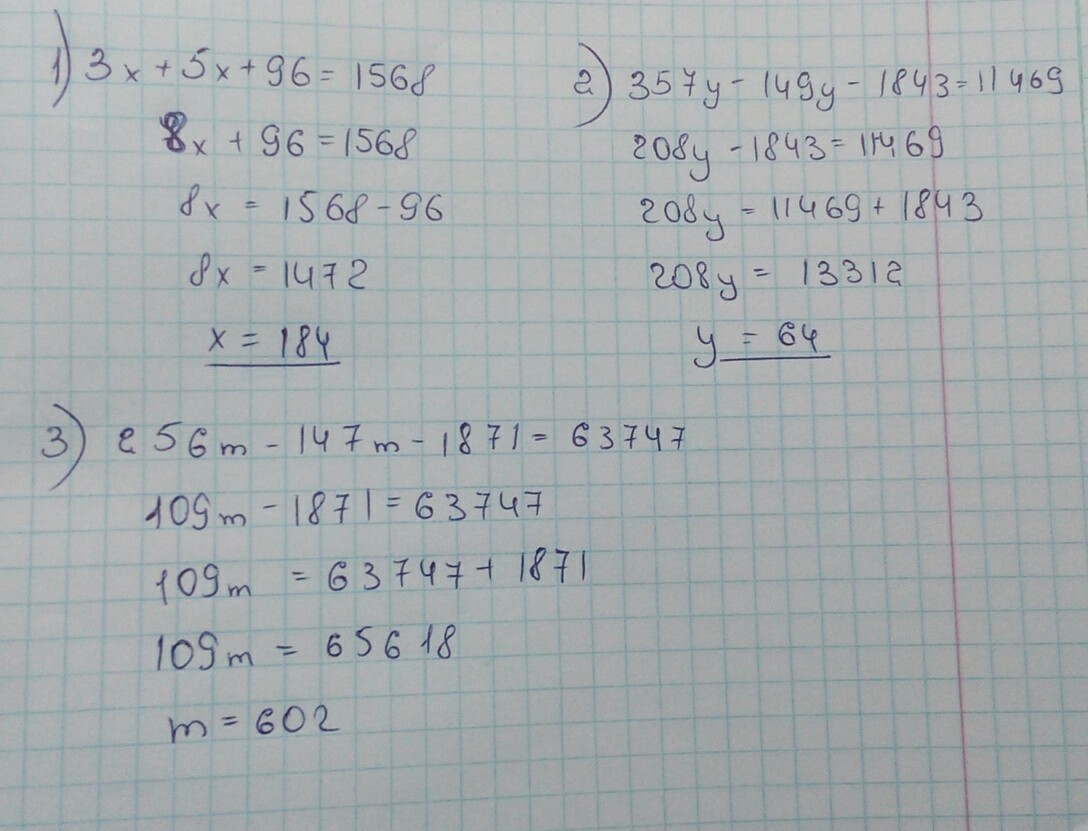 1) 3x + 5x + 96 = 1568
8x + 96 = 1568
8x = 1568 - 96
8x = 1472
x = 184
2) 357y - 149y - 1843 = 11469
208y - 1843 = 11469
208y = 11469 + 1843
208y = 13312
y = 64
3) 256m - 147m - 1871 = 63747
109m - 1871 = 63747
109m = 63747 + 1871
109m = 65618
m = 602